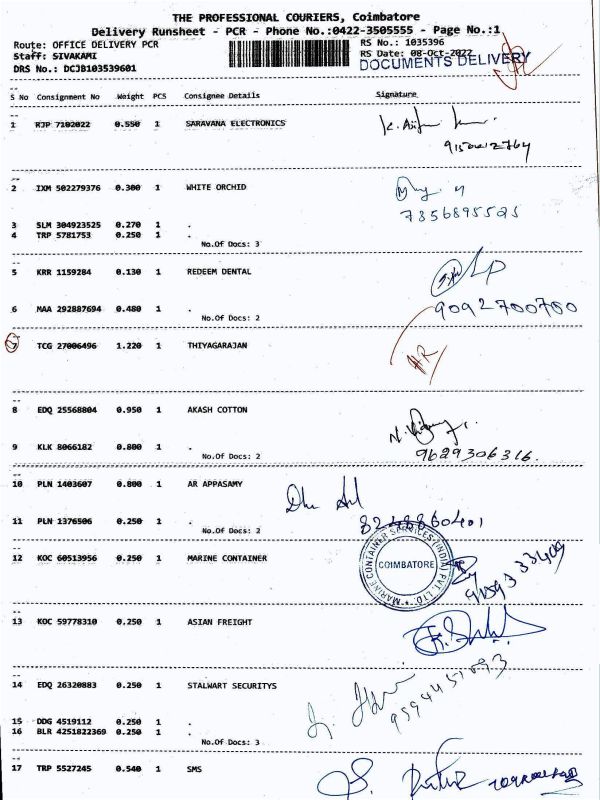 THE PROFESSIONAL COURIERS, Coimbatore
Delivery Runsheet - PCR - Phone No.:0422-3505555 - Page No.:1
Route: OFFICE DELIVERY PCR RS No.: 1035396
Staff: SIVAKAMI RS Date: 08-Oct-2022
DOCUMENTS DELIVERY
DRS No.: DCJB103539601
S No Consignment No Weight PCS Consignee Details Signature
1 RJP 7102022 0.550 1 SARAVANA ELECTRONICS
2 IXM 502279376 0.300 1 WHITE ORCHID
7356895525
3 SLM 304923525 0.270 1 .
4 TRP 5781753 0.250 1 .
No.Of Docs: 3
5 KRR 1159284 0.130 1 REDEEM DENTAL
6 MAA 292887694 0.480 1 .
9092700700
No.Of Docs: 2
7 TCG 27006496 1.220 1 THIYAGARAJAN
8 EDQ 25568804 0.950 1 AKASH COTTON
9 KLK 8066182 0.800 1 .
9629306316.
No.Of Docs: 2
10 PLN 1403607 0.800 1 AR APPASAMY
11 PLN 1376506 0.250 1 .
No.Of Docs: 2
12 KOC 60513956 0.250 1 MARINE CONTAINER
MARINE CONTAINER SERVICES (INDIA) PVT. LTD.
COIMBATORE
13 KOC 59778310 0.250 1 ASIAN FREIGHT
14 EDQ 26320883 0.250 1 STALWART SECURITYS
15 DDG 4519112 0.250 1 .
16 BLR 4251822369 0.250 1 .
No.Of Docs: 3
17 TRP 5527245 0.540 1 SMS